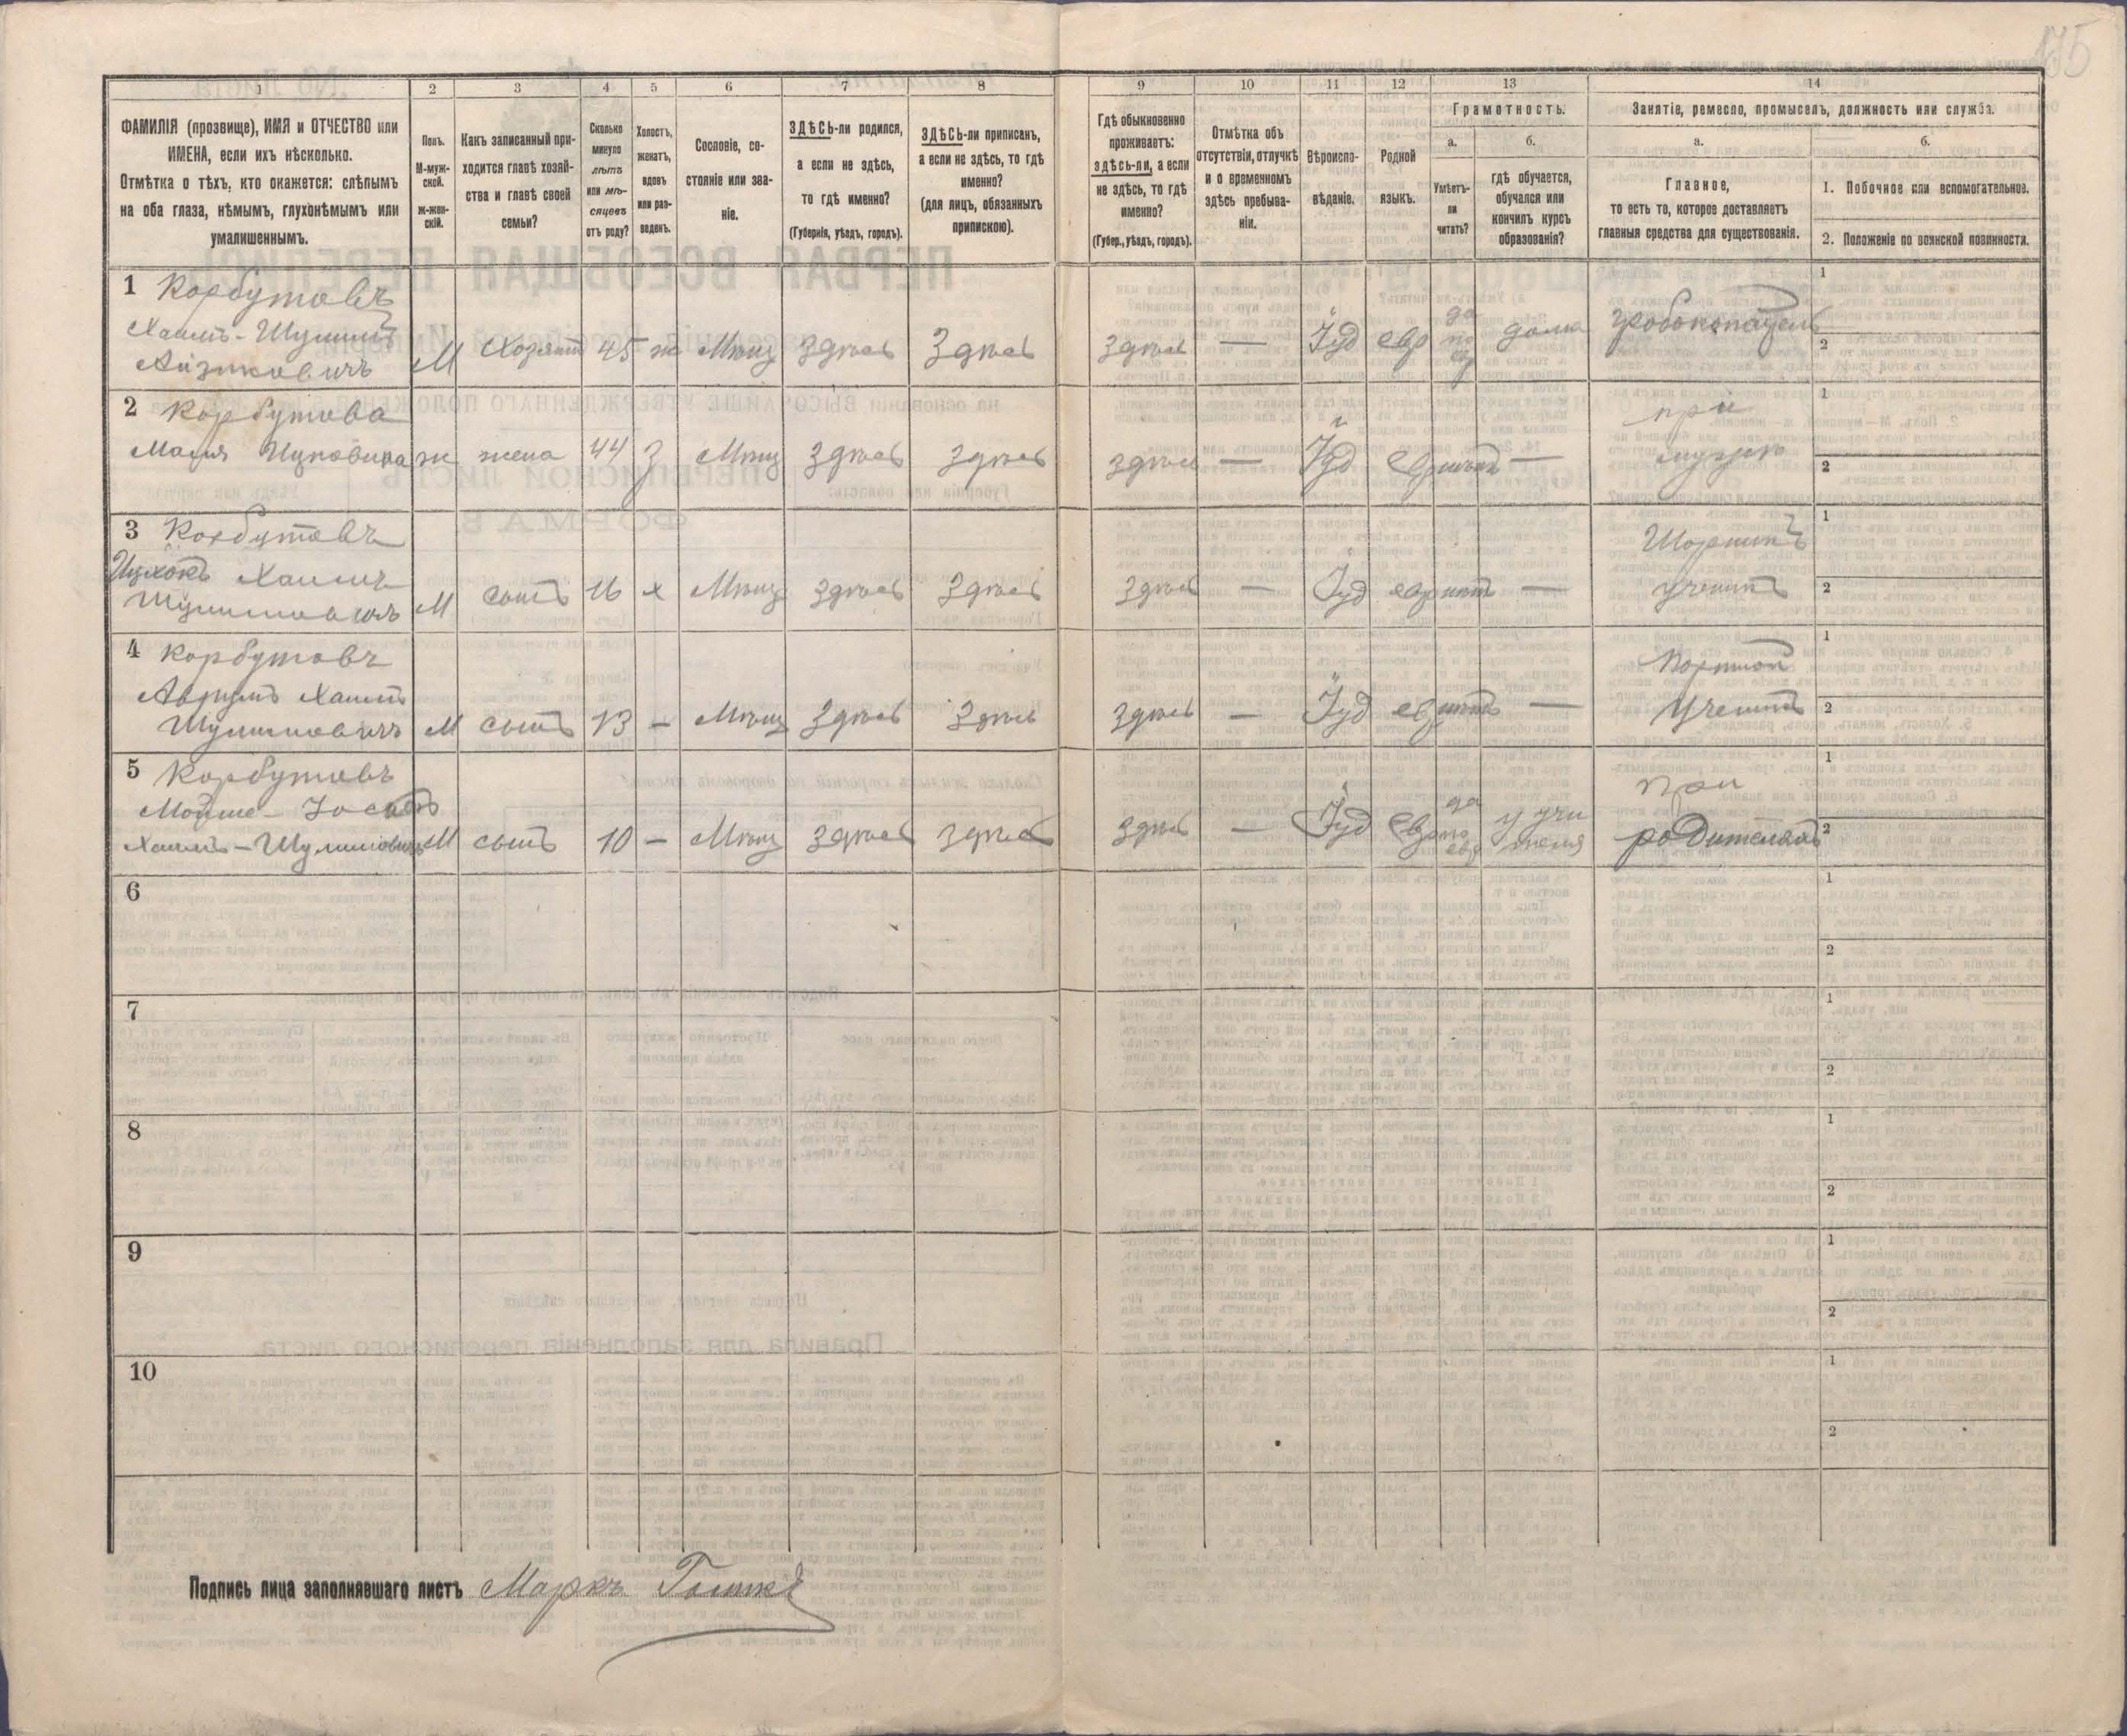 175
1 2 3 4 5 6 7 8 9 10 11 12 13 14
ФАМИЛІЯ (прозвище), ИМЯ и ОТЧЕСТВО или
ИМЕНА, если ихъ нѣсколько.
Отмѣтка о тѣхъ, кто окажется: слѣпымъ
на оба глаза, нѣмымъ, глухонѣмымъ или
умалишеннымъ.
Полъ.
М-муж-
ской.
ж-жен-
скій.
Какъ записанный при-
ходится главѣ хозяй-
ства и главѣ своей
семьи?
Сколько
минуло
лѣтъ
или мѣ-
сяцевъ
отъ роду?
Холостъ,
женатъ,
вдовъ
или раз-
веденъ.
Сословіе, со-
стояніе или зва-
ніе.
ЗДѢСЬ-ли родился,
а если не здѣсь,
то гдѣ именно?
(Губернія, уѣздъ, городъ).
ЗДѢСЬ-ли приписанъ,
а если не здѣсь, то гдѣ
именно?
(для лицъ, обязанныхъ
припискою).
Гдѣ обыкновенно
проживаетъ:
здѣсь-ли, а если
не здѣсь, то гдѣ
именно?
(Губер., уѣздъ, городъ).
Отмѣтка объ
отсутствіи, отлучкѣ
и о временномъ
здѣсь пребыва-
ніи.
Вѣроиспо-
вѣданіе.
Родной
языкъ.
Грамотность.
а.
Умѣетъ-
ли
читать?
б.
гдѣ обучается,
обучался или
кончилъ курсъ
образованія?
Занятіе, ремесло, промыселъ, должность или служба.
а.
Главное,
то есть то, которое доставляетъ
главныя средства для существованія.
б.
1. Побочное или вспомогательное.
2. Положеніе по воинской повинности.
1 Корбутовъ
Хаимъ-Шулимъ
Айзиковичъ М Хозяинъ 45 ж Мѣщ Здѣсь Здѣсь Здѣсь — Іуд евр да по евр дома гробокопатель 1 2
2 Корбутова
Маля Ицковна ж жена 44 з Мѣщ Здѣсь Здѣсь Здѣсь — Іуд евр нѣтъ — при мужѣ 1 2
3 Корбутовъ
Ицхокъ Хаимъ
Шулимовичъ М сынъ 16 х Мѣщ Здѣсь Здѣсь Здѣсь — Іуд евр нѣтъ — Шорникъ ученикъ 1 2
4 Корбутовъ
Аврумъ Хаимъ
Шулимовичъ М сынъ 13 — Мѣщ Здѣсь Здѣсь Здѣсь — Іуд евр нѣтъ — Портной Ученикъ 1 2
5 Корбутовъ
Мойше-Іосифъ
Хаимъ-Шулимовичъ М сынъ 10 — Мѣщ Здѣсь Здѣсь Здѣсь — Іуд евр да по евр у учителя при родителяхъ 1 2
6 1 2
7 1 2
8 1 2
9 1 2
10 1 2
Подпись лица заполнявшаго листъ Маркъ